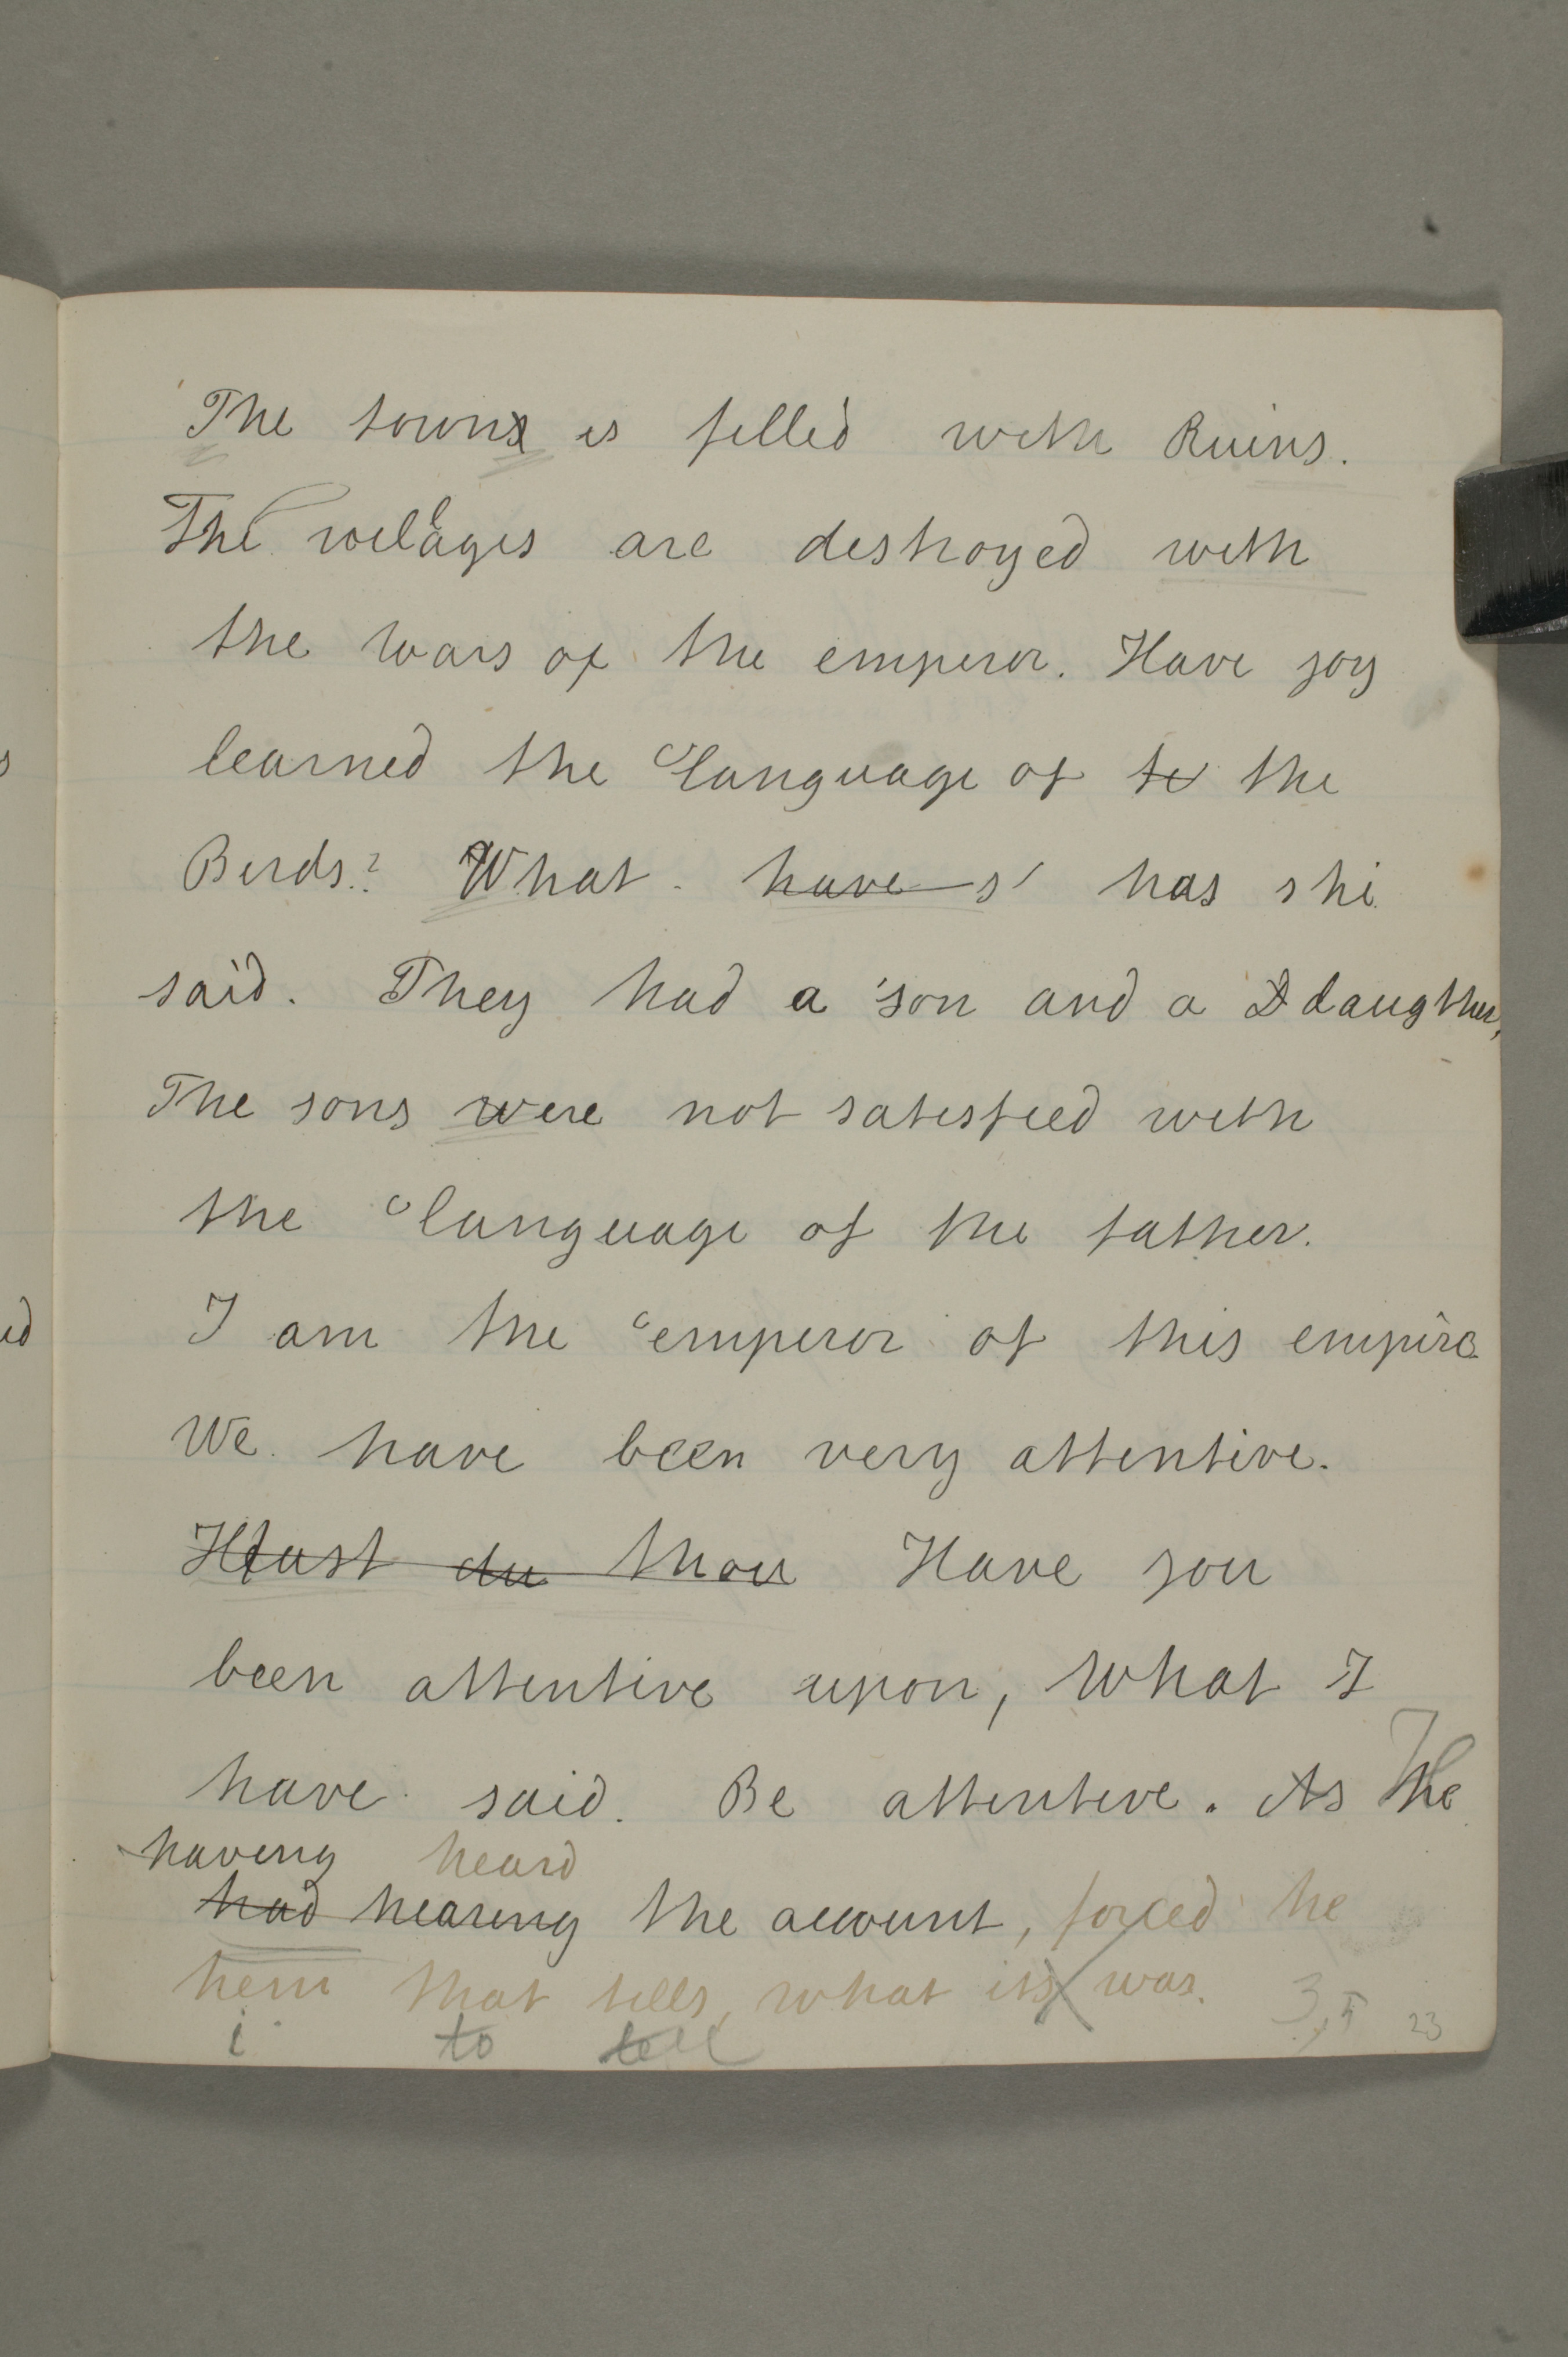 The towns is filled with Ruins.
The vellages are destroyed with
the wars of the emperor. Have yoy
learned the language of te the
Birds? What have s has she
said. They had a son and a D daugther,
The sons were not satisfied with
the language of the father.
I am the emperor of this empire
We have been very attentive.
Hdust du thou Have you
been attentive upon, What I
have said. Be attentive. As The
having heard
had hearing the account, forced he
hem that tells, what its was. 3,5 23
i to tell